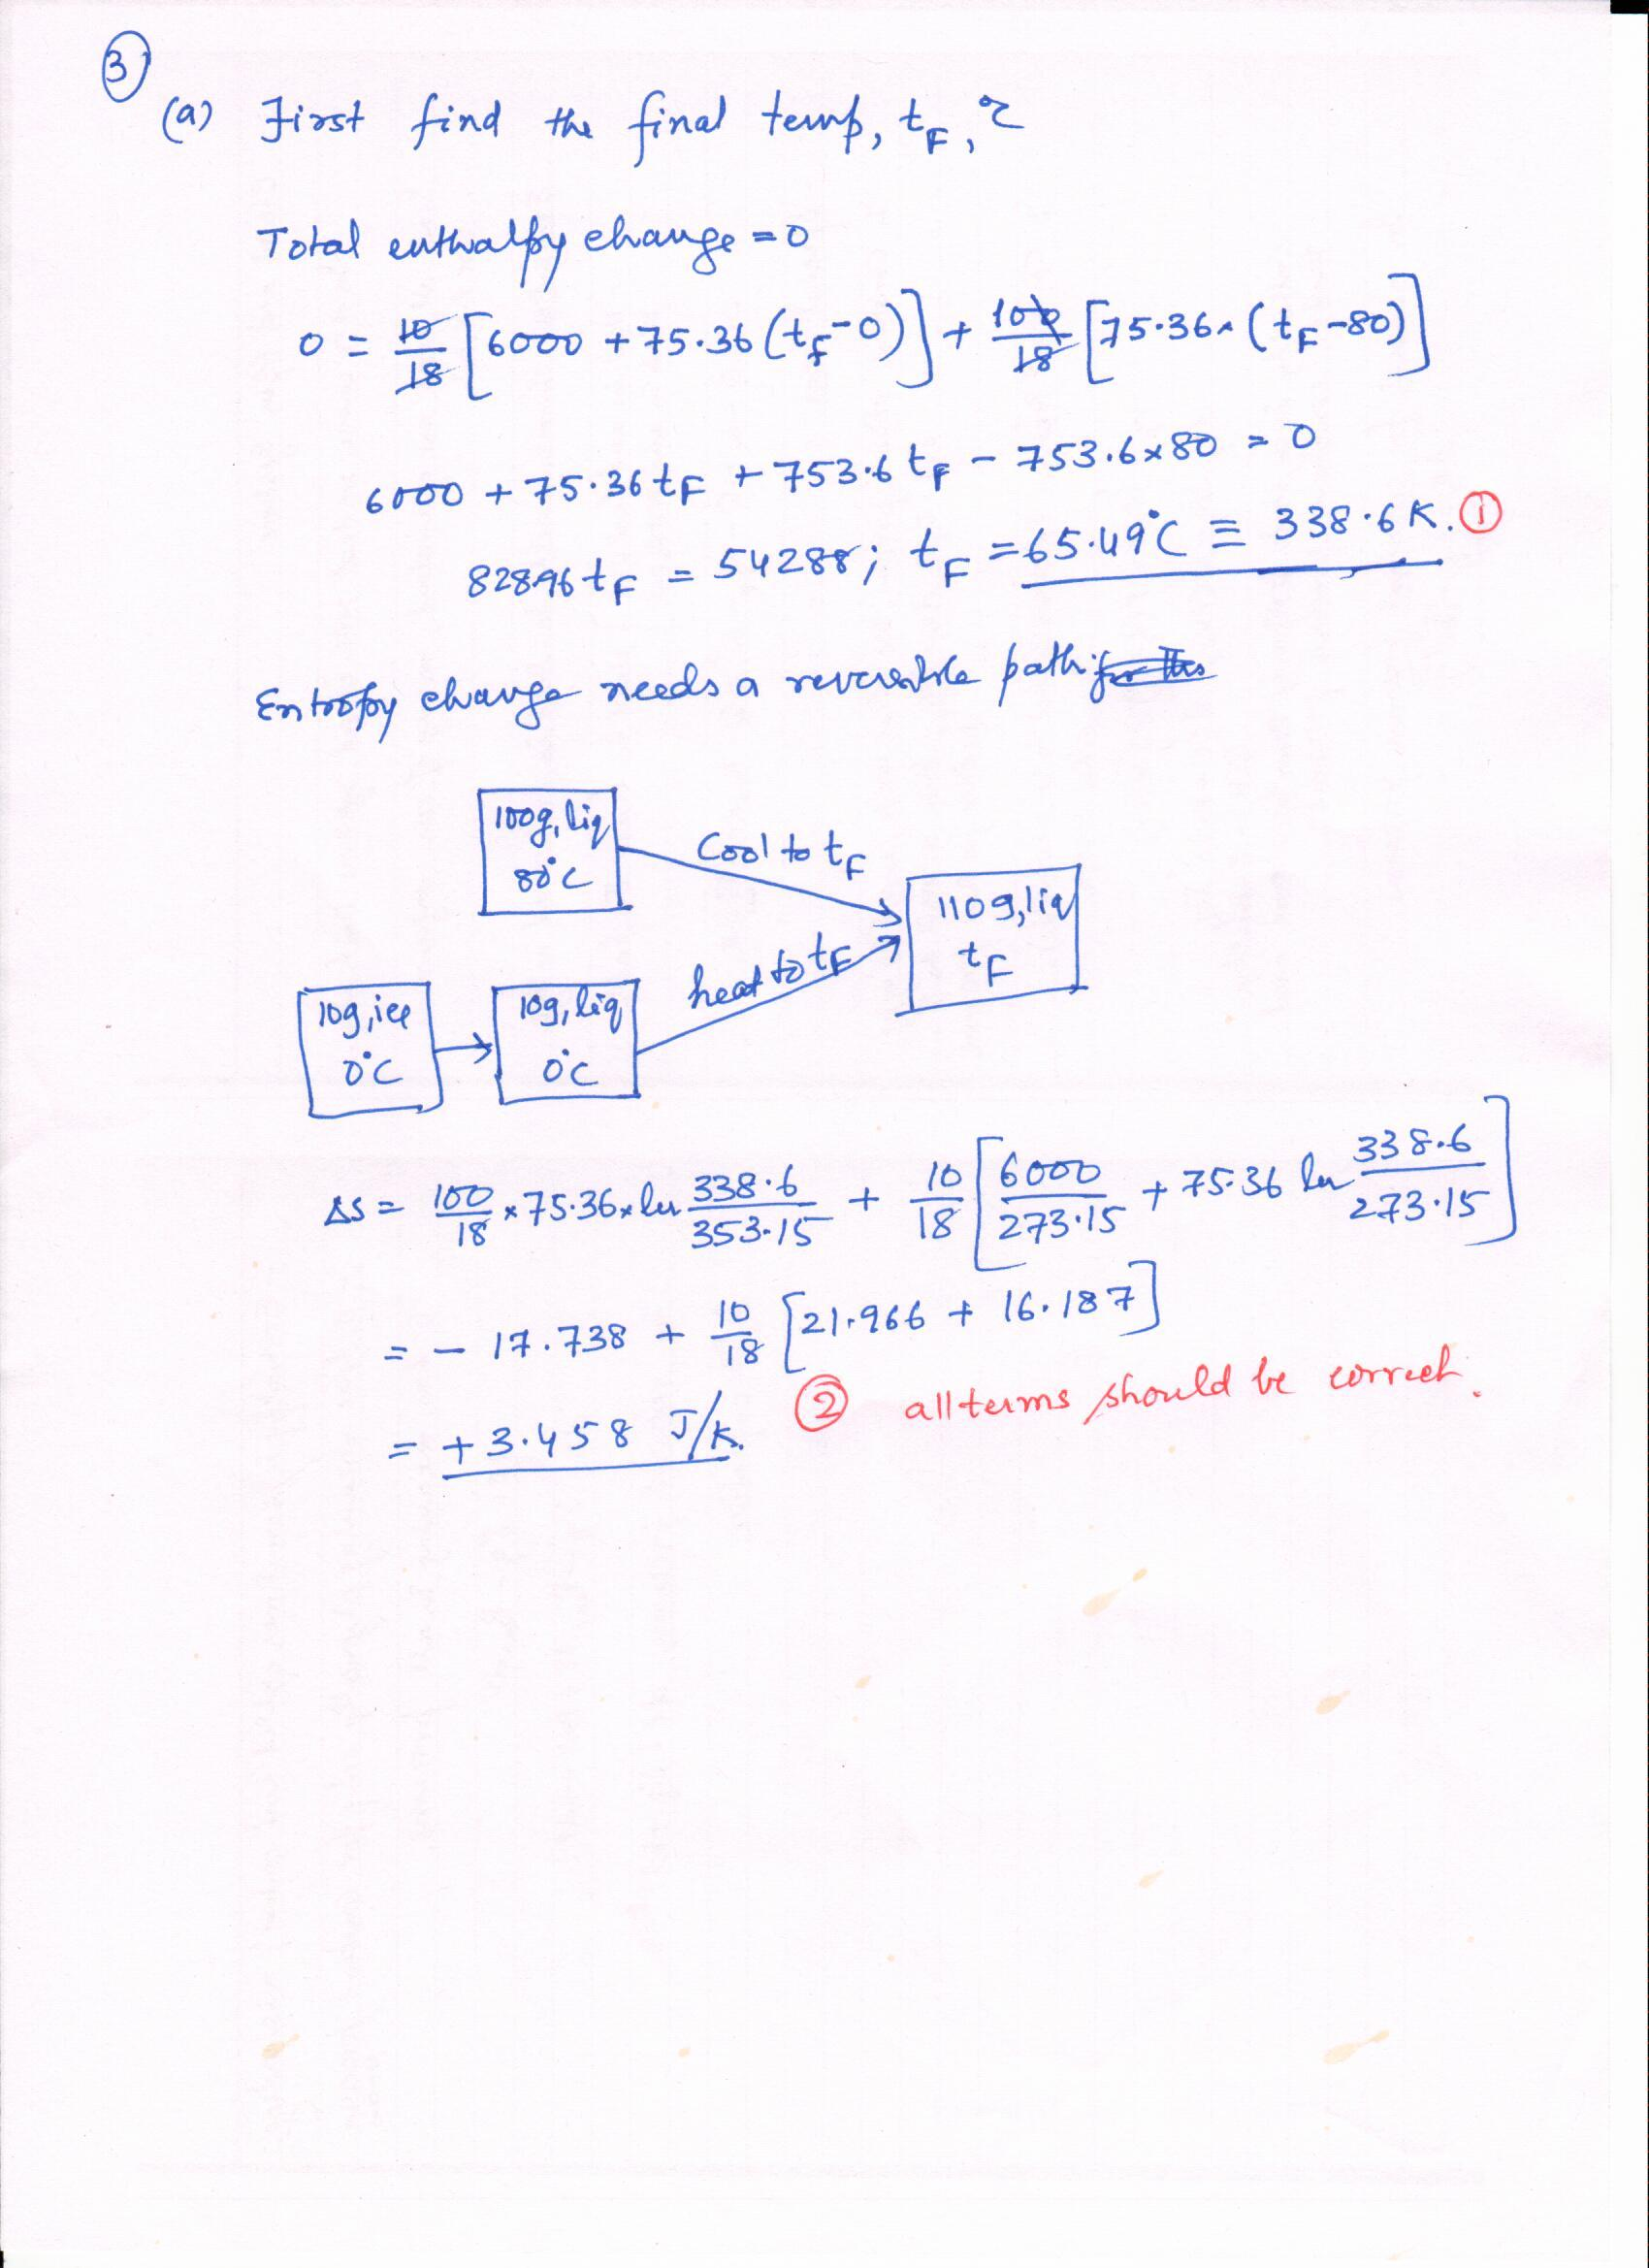 3
(a) First find the final temp, t_F, ?
Total enthalpy change = 0
0 = 10/18 [6000 + 75.36 (t_F - 0)] + 100/18 [75.36 × (t_F - 80)]
6000 + 75.36 t_F + 753.6 t_F - 753.6 × 80 = 0
828.96 t_F = 54288; t_F = 65.49°C ≡ 338.6 K. 1
Entropy change needs a reversible path: for this
100g, liq
80°C
Cool to t_F
110g, liq
t_F
heat to t_F
10g, ice
0°C
10g, liq
0°C
ΔS = 100/18 × 75.36 × ln 338.6/353.15 + 10/18 [6000/273.15 + 75.36 ln 338.6/273.15]
= - 17.738 + 10/18 [21.966 + 16.187]
= + 3.458 J/K.
2 all terms should be correct.